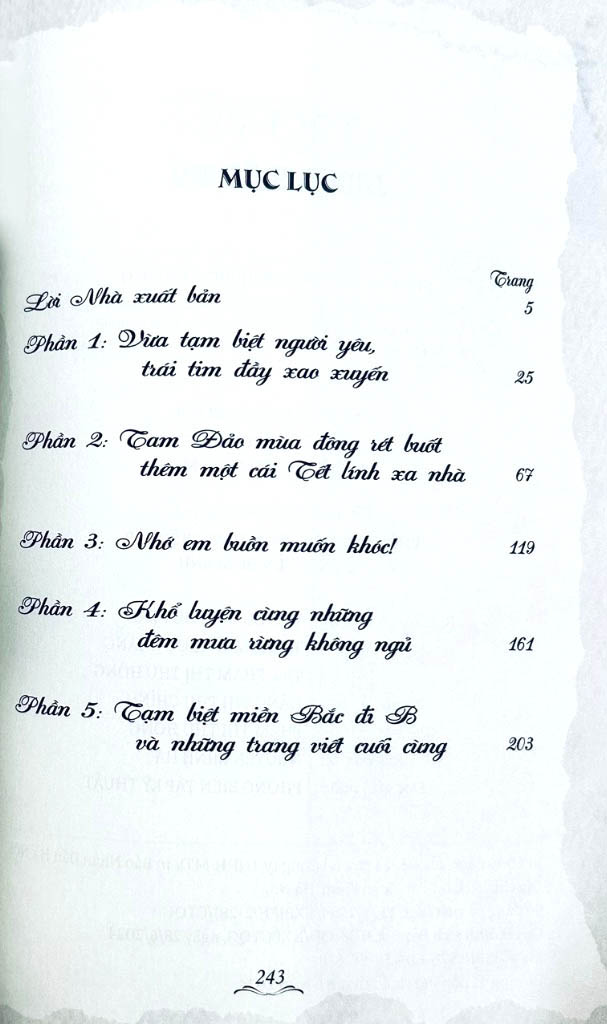 MỤC LỤC
Trang
Lời Nhà xuất bản 5
Phần 1: Vừa tạm biệt người yêu,
trái tim đầy xao xuyến 25
Phần 2: Tam Đảo mùa đông rét buốt
thêm một cái Tết lính xa nhà 67
Phần 3: Nhớ em buồn muốn khóc! 119
Phần 4: Khổ luyện cùng những
đêm mưa rừng không ngủ 161
Phần 5: Tạm biệt miền Bắc đi B
và những trang viết cuối cùng 203
243